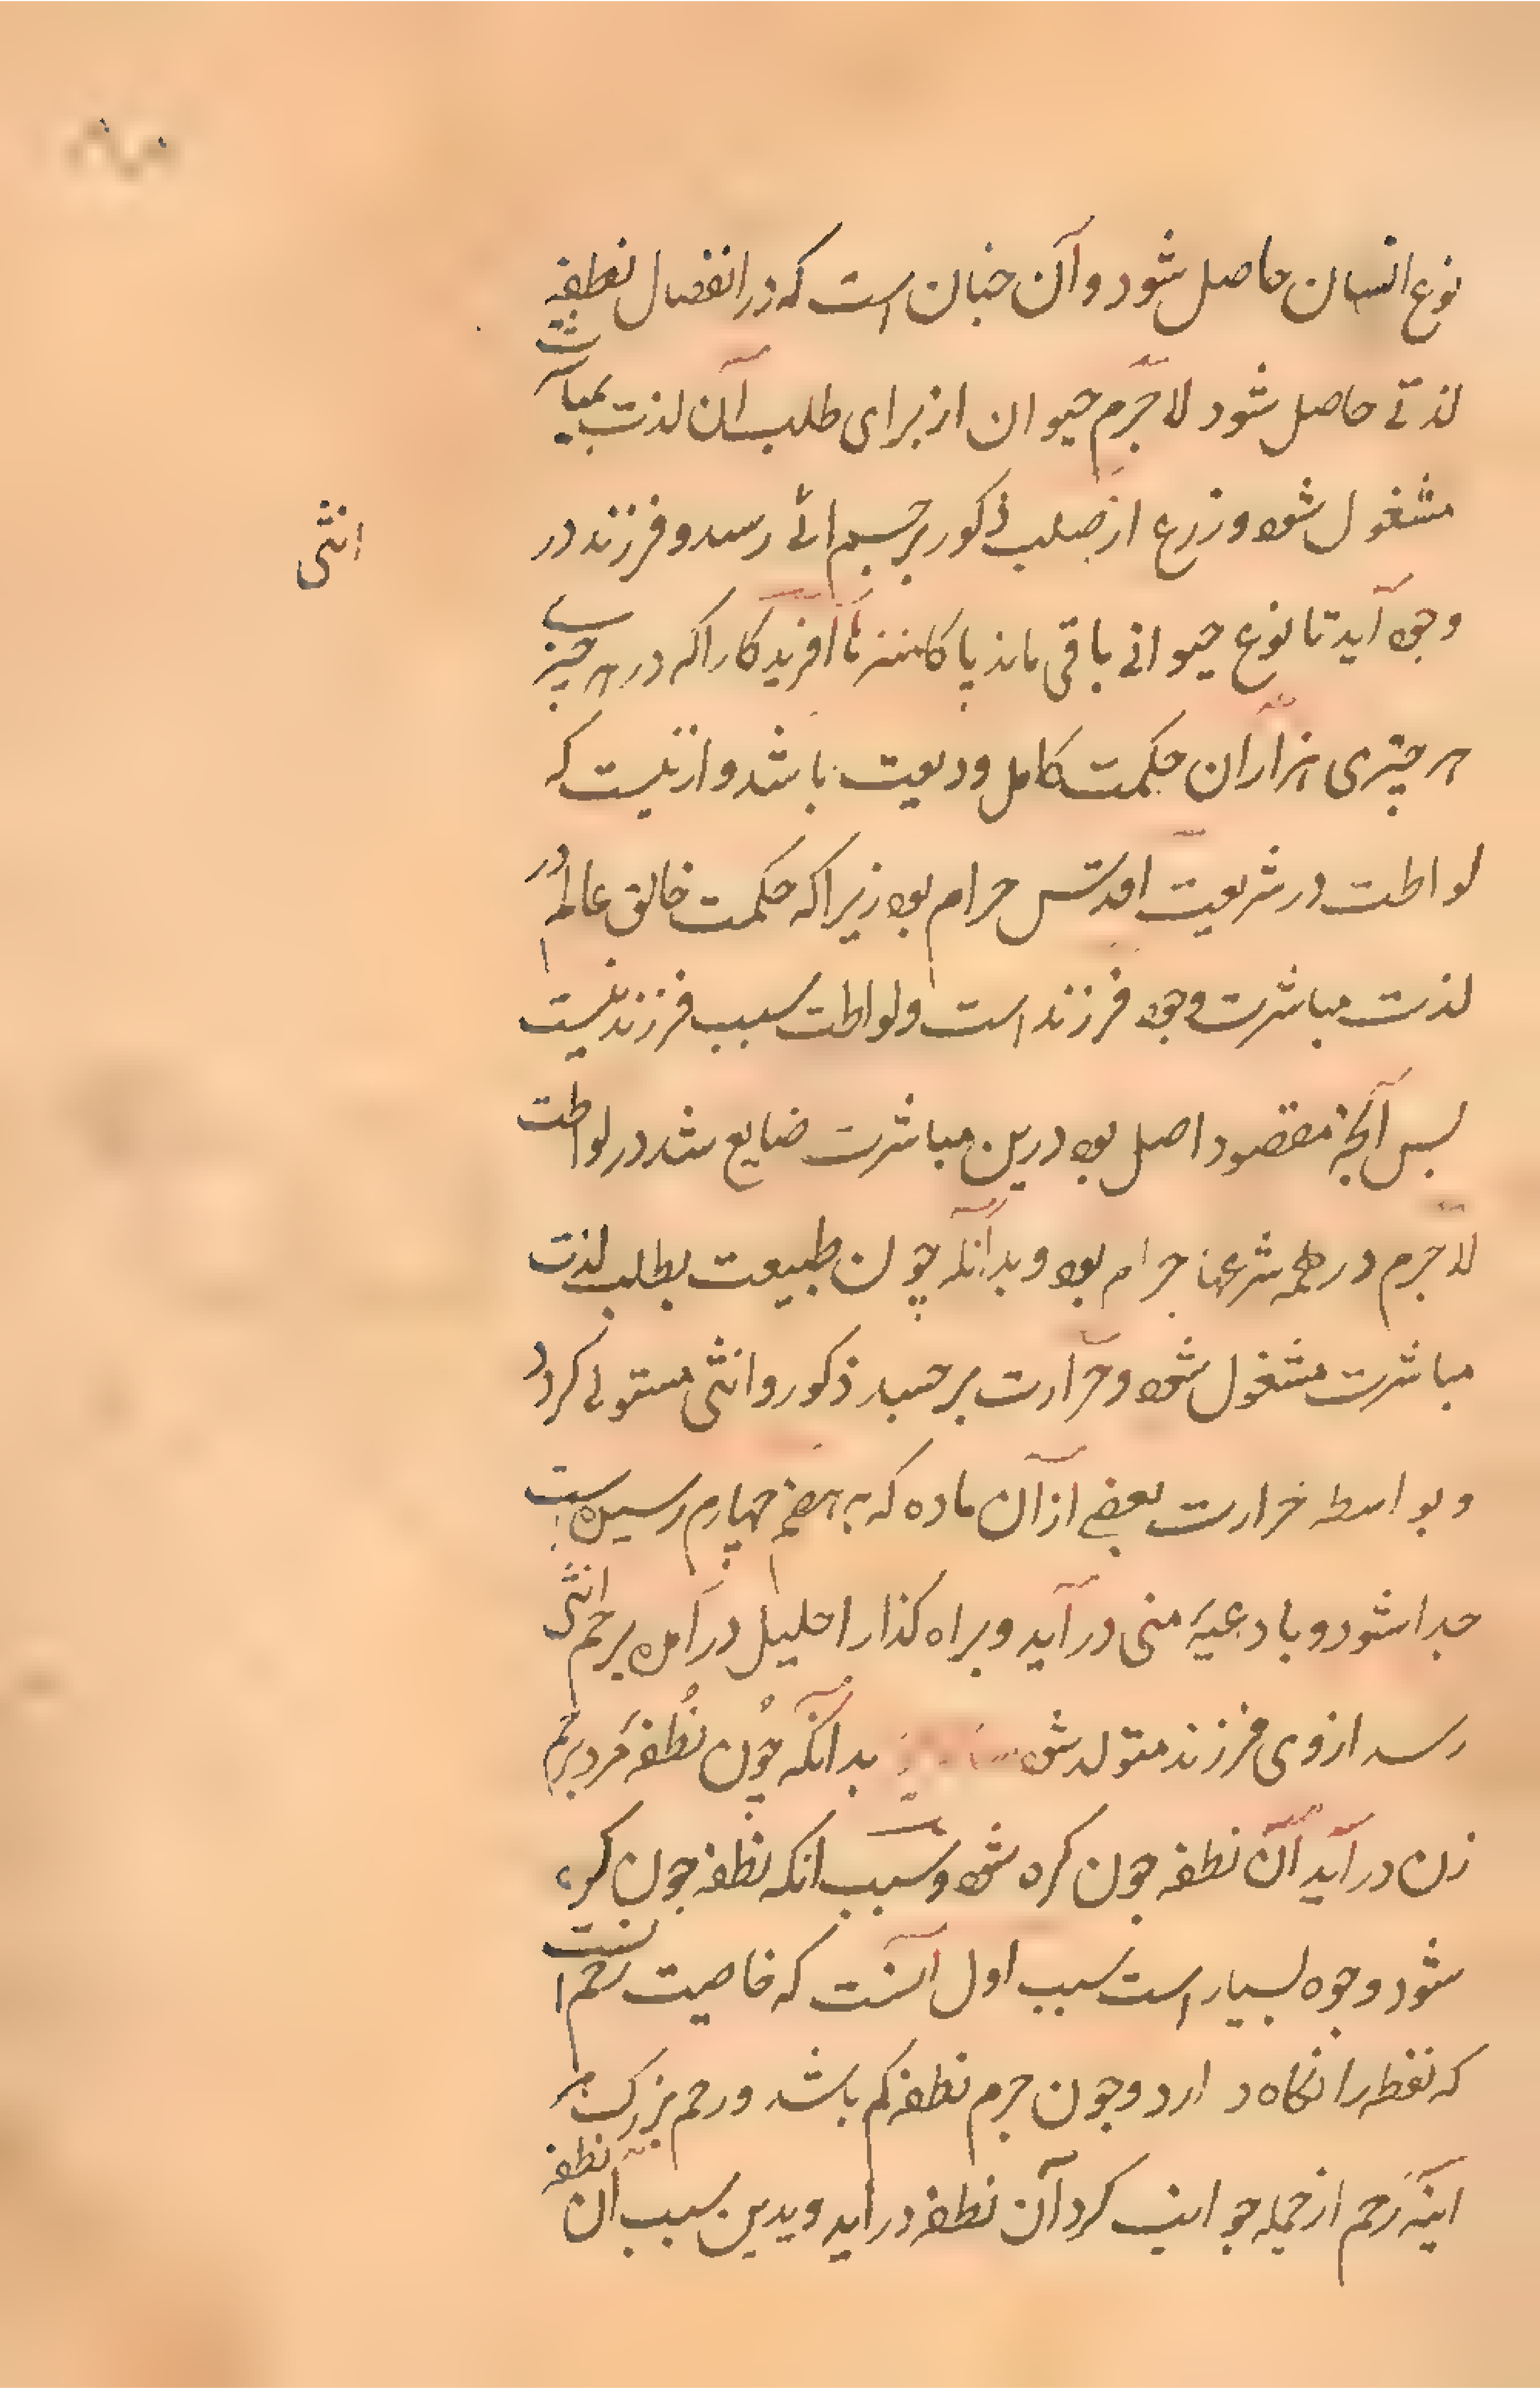 نوع انسان حاصل شود و آن چنان است که در انفصال نطفه
لذتی حاصل شود لاجرم حیوان از برای طلب آن لذت بمباشرت
مشغول شود و زرع از صلب ذکور برحم انثی رسد و فرزند در
انثی
وجود آید تا نوع حیوانی باقی ماند پاکا منزها آفریدگارا که در هر چیزی
هر چیزی هزاران حکمت کامل ودیعت باشد و ازینست که
لواطت در شریعت اقدس حرام بود زیرا که حکمت خالق عالم در
لذت مباشرت وجود فرزند است و لواطت سبب فرزند نیست
پس آنچه مقصود اصل بود درین مباشرت ضایع شد در لواطت
لاجرم در همه شرعها حرام بود و بدانکه چون طبیعت بطلب لذت
مباشرت مشغول شود و حرارت بر جسد ذکور و انثی مستولی کردد
و بواسطه حرارت بعضی از آن ماده که به هضم چهارم رسیده است
جدا شود و باوعیهٔ منی در آید و براه کذار احلیل در آمده برحم انثی
رسد از وی فرزند متولد شود بدانکه چون نطفهٔ مرد برحم
زن در آید آن نطفه چون کره شود و سبب آنکه نطفه چون کره
شود وجوه بسیار است سبب اول آنست که خاصیت رحم آنست
که نطفه را نکاه دارد و چون جرم نطفه کم باشد و رحم بزرک هر
آینه رحم از جمله جوانب کرد آن نطفه در آید و بدین سبب آن نطفه